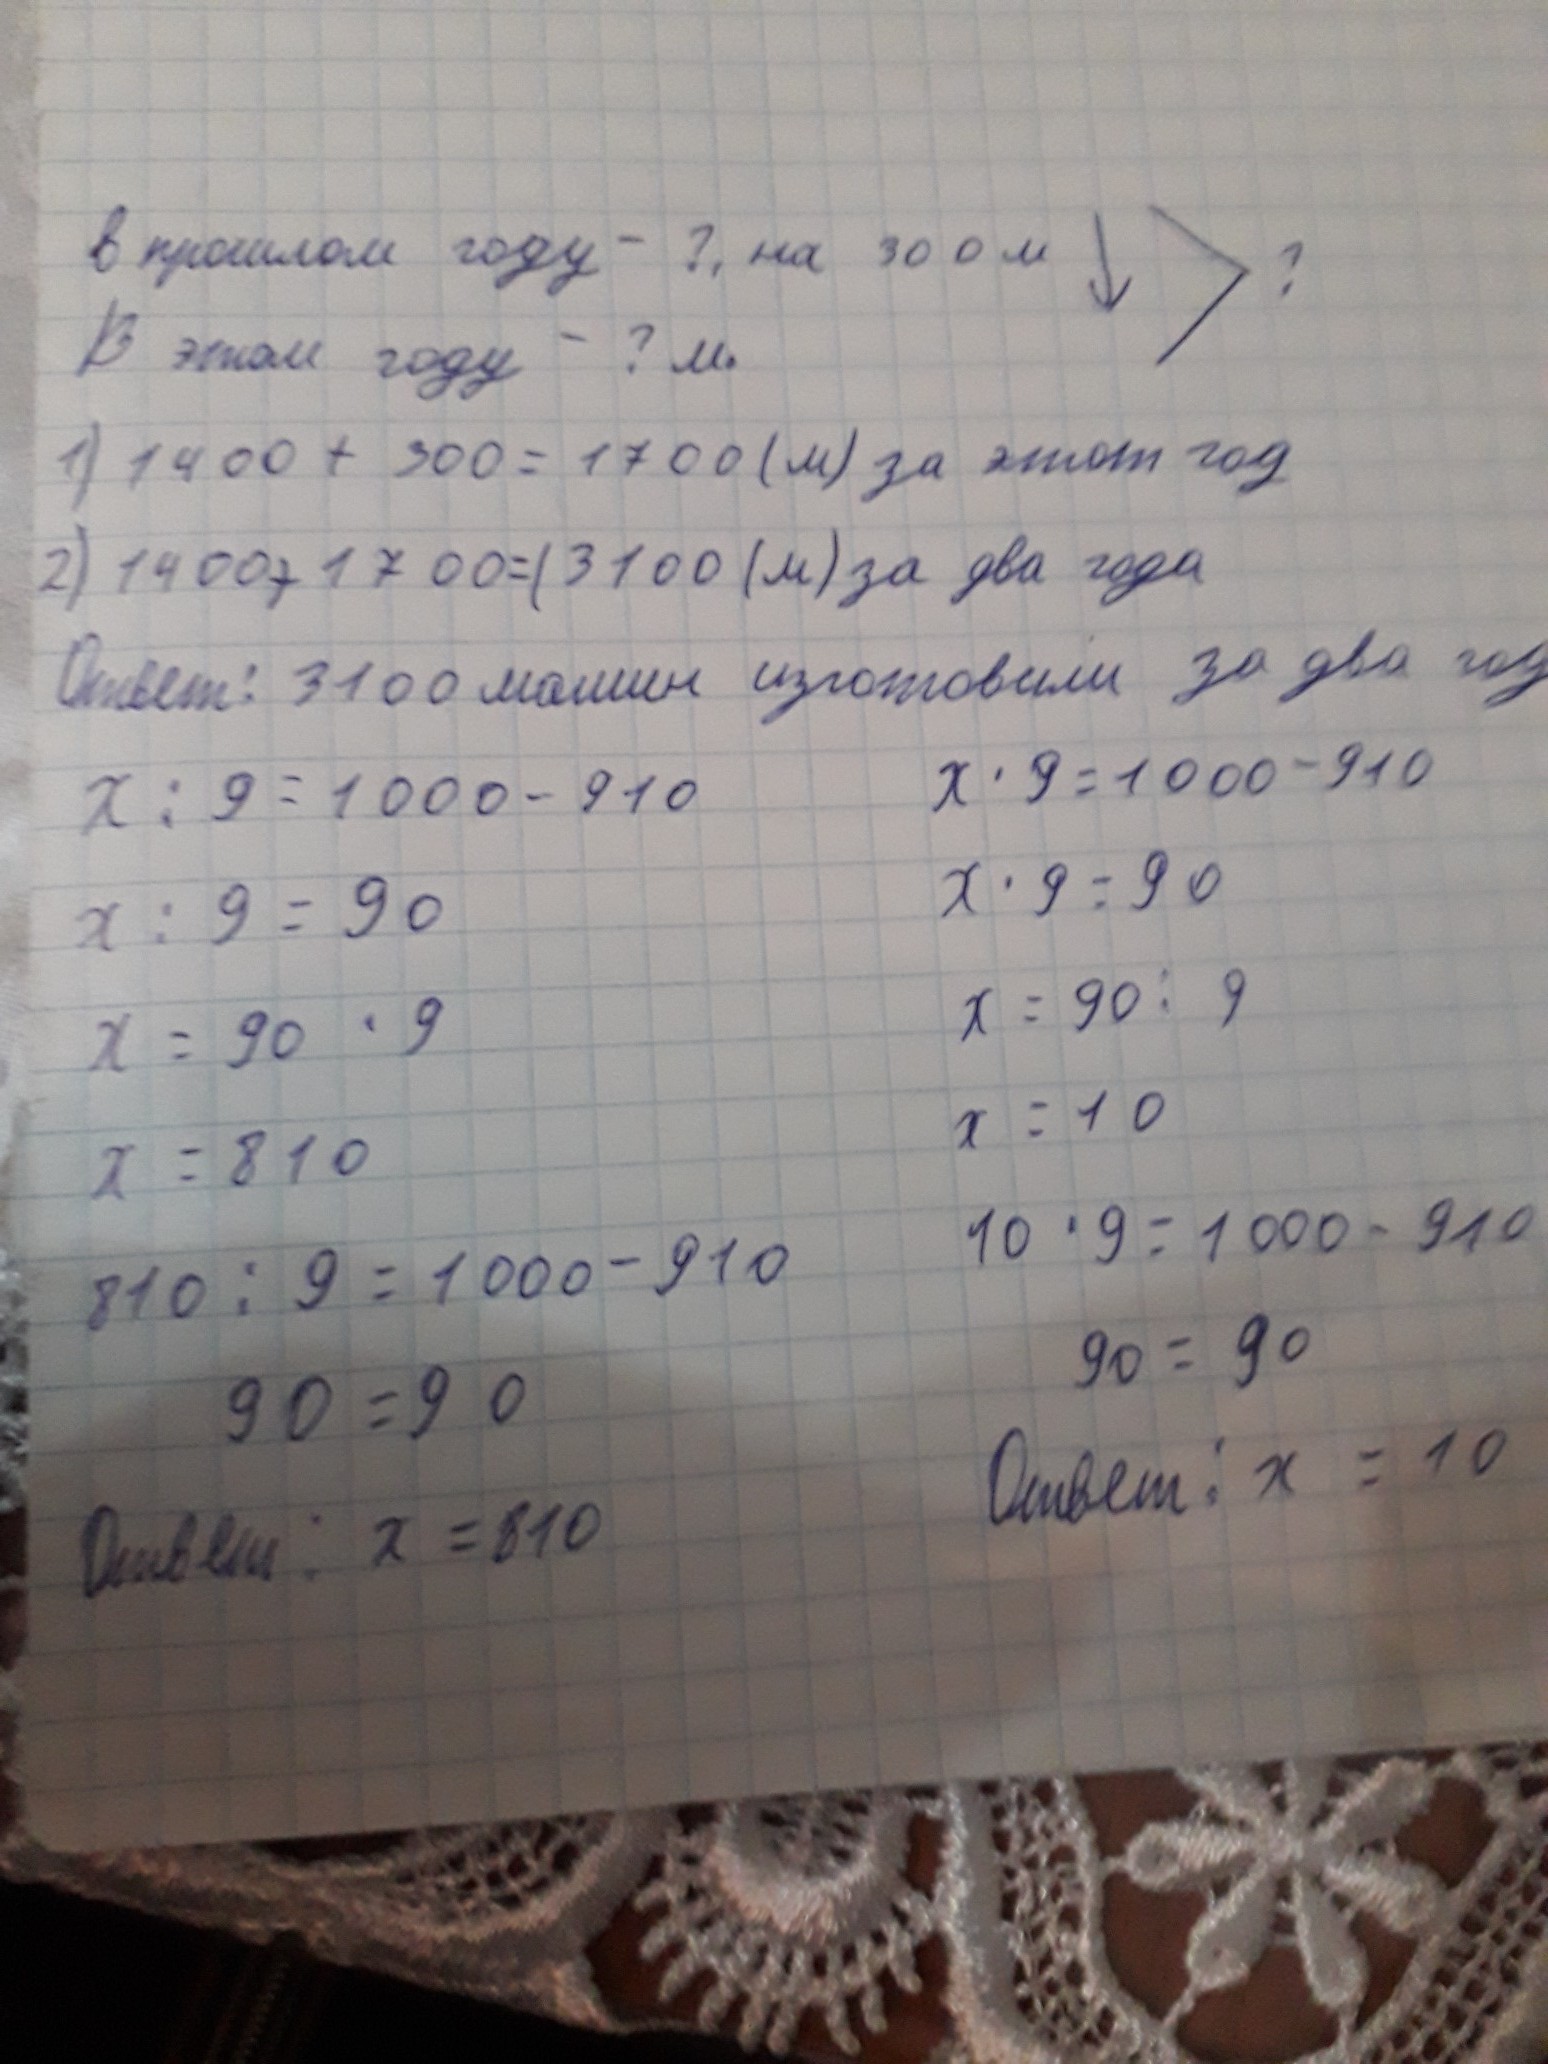 в прошлом году - ?, на 300 м ↓ > ?
В этом году - ? м.
1) 1400 + 300 = 1700 (м) за этот год
2) 1400 + 1700 = (3100 (м) за два года
Ответ: 3100 машин изготовили за два год
x : 9 = 1000 - 910
x : 9 = 90
x = 90 · 9
x = 810
810 : 9 = 1000 - 910
90 = 90
Ответ: x = 810
x · 9 = 1000 - 910
x · 9 = 90
x = 90 : 9
x = 10
10 · 9 = 1000 - 910
90 = 90
Ответ: x = 10